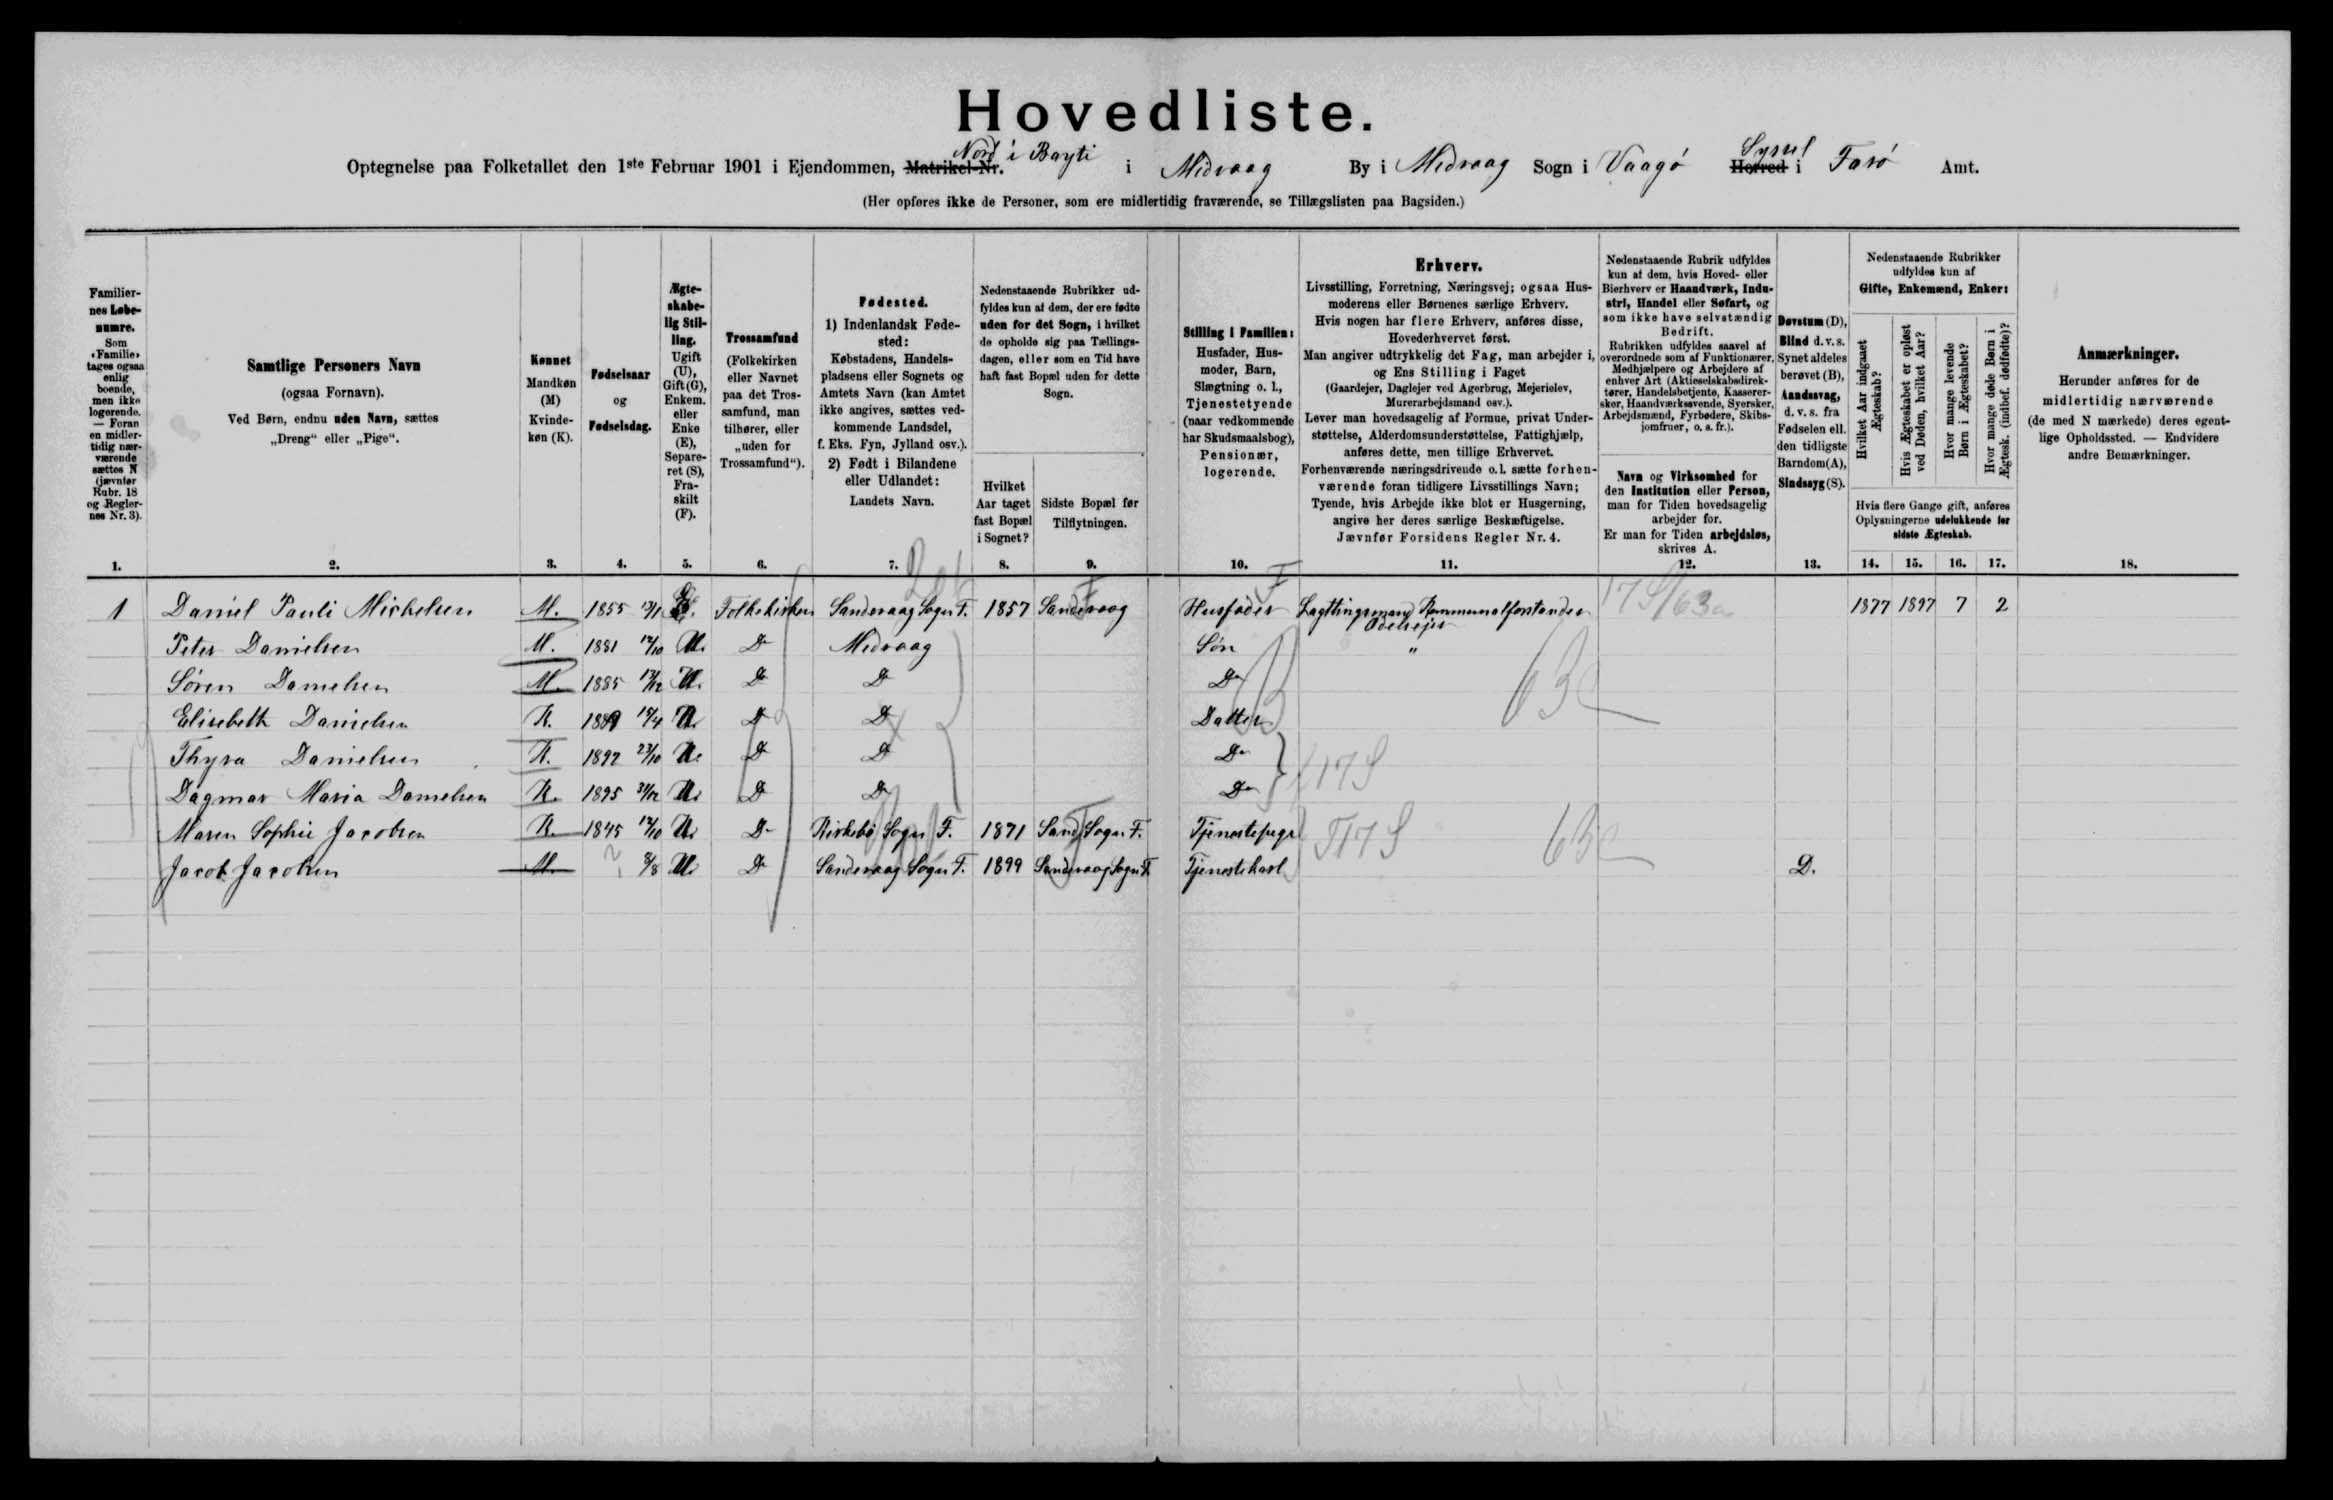 Hovedliste.
Optegnelse paa Folketallet den 1ste Februar 1901 i Ejendommen, Matrikel-Nr. Nord i Bayti i Midvaag By i Midvaag Sogn i Vaagø Herred Syssel i Farø Amt.
(Her opføres ikke de Personer, som ere midlertidig fraværende, se Tillægslisten paa Bagsiden.)
Familiernes Løbenumre.
Som «Familie» tages ogsaa enlig boende, men ikke logerende. — Foran en midlertidig nærværende sættes N (jævnfør Rubr. 18 og Reglernes Nr. 3).
Samtlige Personers Navn
(ogsaa Fornavn).
Ved Børn, endnu uden Navn, sættes
„Dreng“ eller „Pige“.
Kønnet
Mandkøn (M)
Kvindekøn (K).
Fødselsaar
og
Fødselsdag.
Ægteskabelig Stilling.
Ugift (U), Gift (G), Enkem. eller Enke (E), Separeret (S), Fraskilt (F).
Trossamfund
(Folkekirken eller Navnet paa det Trossamfund, man tilhører, eller „uden for Trossamfund“).
Fødested.
1) Indenlandsk Fødested:
Købstadens, Handelspladsens eller Sognets og Amtets Navn (kan Amtet ikke angives, sættes vedkommende Landsdel, f. Eks. Fyn, Jylland osv.).
2) Født i Bilandene eller Udlandet:
Landets Navn.
Nedenstaaende Rubrikker udfyldes kun af dem, der ere fødte uden for det Sogn, i hvilket de opholde sig paa Tællingsdagen, eller som en Tid have haft fast Bopæl uden for dette Sogn.
Hvilket Aar taget fast Bopæl i Sognet?
Sidste Bopæl før Tilflytningen.
Stilling i Familien:
Husfader, Husmoder, Barn, Slægtning o. l., Tjenestetyende (naar vedkommende har Skudsmaalsbog), Pensionær, logerende.
Erhverv.
Livsstilling, Forretning, Næringsvej; ogsaa Husmoderens eller Børnenes særlige Erhverv.
Hvis nogen har flere Erhverv, anføres disse, Hovederhvervet først.
Man angiver udtrykkelig det Fag, man arbejder i, og Ens Stilling i Faget
(Gaardejer, Daglejer ved Agerbrug, Mejerielev, Murerarbejdsmand osv.).
Lever man hovedsagelig af Formue, privat Understøttelse, Alderdomsunderstøttelse, Fattighjælp, anføres dette, men tillige Erhvervet.
Forhenværende næringsdrivende o. l. sætte forhenværende foran tidligere Livsstillings Navn;
Tyende, hvis Arbejde ikke blot er Husgerning, angive her deres særlige Beskæftigelse.
Jævnfør Forsidens Regler Nr. 4.
Nedenstaaende Rubrik udfyldes kun af dem, hvis Hoved- eller Bierhverv er Haandværk, Industri, Handel eller Søfart, og som ikke have selvstændig Bedrift.
Rubrikken udfyldes saavel af overordnede som af Funktionærer, Medhjælpere og Arbejdere af enhver Art (Aktieselskabsdirektører, Handelsbetjente, Kasserersker, Haandværkssvende, Syersker, Arbejdsmænd, Fyrbødere, Skibsjomfruer, o. s. fr.).
Navn og Virksomhed for den Institution eller Person, man for Tiden hovedsagelig arbejder for.
Er man for Tiden arbejdsløs, skrives A.
Døvstum (D), Blind d. v. s. Synet aldeles berøvet (B), Aandssvag, d. v. s. fra Fødselen ell. den tidligste Barndom (A), Sindssyg (S).
Nedenstaaende Rubrikker udfyldes kun af Gifte, Enkemænd, Enker:
Hvilket Aar indgaaet Ægteskab?
Hvis Ægteskabet er opløst ved Døden, hvilket Aar?
Hvor mange levende Børn i Ægteskabet?
Hvor mange døde Børn i Ægtesk. (indbef. dødfødte)?
Hvis flere Gange gift, anføres Oplysningerne udelukkende for sidste Ægteskab.
Anmærkninger.
Herunder anføres for de midlertidig nærværende (de med N mærkede) deres egentlige Opholdssted. — Endvidere andre Bemærkninger.
1. 2. 3. 4. 5. 6. 7. 8. 9. 10. 11. 12. 13. 14. 15. 16. 17. 18.
1 Daniel Pauli Michelsen M. 1855 E. Folkekirken Sandevaag Sogn F. 1857 Sandevaag Husfader Lagthingsmand Kommunalforstander 17 S/63a 1877 1897 7 2
Odelsejer
Peter Danielsen M. 1881 12/10 U. Do Midvaag Søn "
Søren Danielsen M. 1885 13/12 U. Do Do Do
Elisebeth Danielsen K. 15/4 U. Do Do Datter
Thyra Danielsen K. 1892 23/10 U. Do Do Do
Dagmar Maria Danielsen K. 1895 31/12 U. Do Do Do 17 S
Maren Sophie Jacobsen K. 1845 12/10 U. Do Kirkebø Sogn F. 1871 Sand Sogn F. Tjenestepige T17 S
Jacob Jacobsen M. ? 8/8 U. Do Sandevaag Sogn F. 1899 Sandevaag Sogn F. Tjenestekarl D.